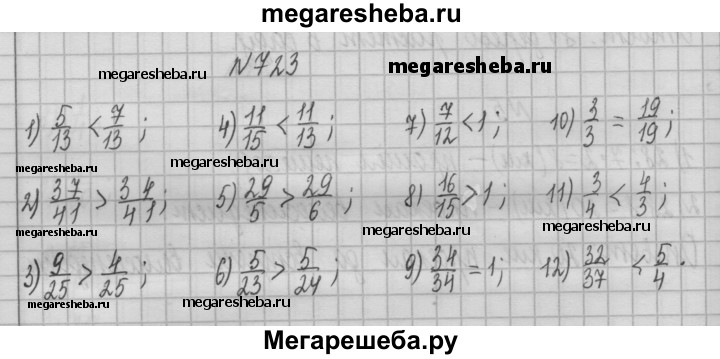 megaresheba.ru
№723
megaresheba.ru megaresheba.ru
1) 5/13 < 7/13; 4) 11/15 < 11/13; 7) 7/12 < 1; 10) 3/3 = 19/19;
megaresheba.ru megaresheba.ru megaresheba.ru
2) 37/41 > 34/41; 5) 29/5 > 29/6; 8) 16/15 > 1; 11) 3/4 < 4/3;
megaresheba.ru megaresheba.ru megaresheba.ru
3) 9/25 > 4/25; 6) 5/23 > 5/24; 9) 34/34 = 1; 12) 32/37 < 5/4.
megaresheba.ru megaresheba.ru megaresheba.ru
Мегарешеба.ру